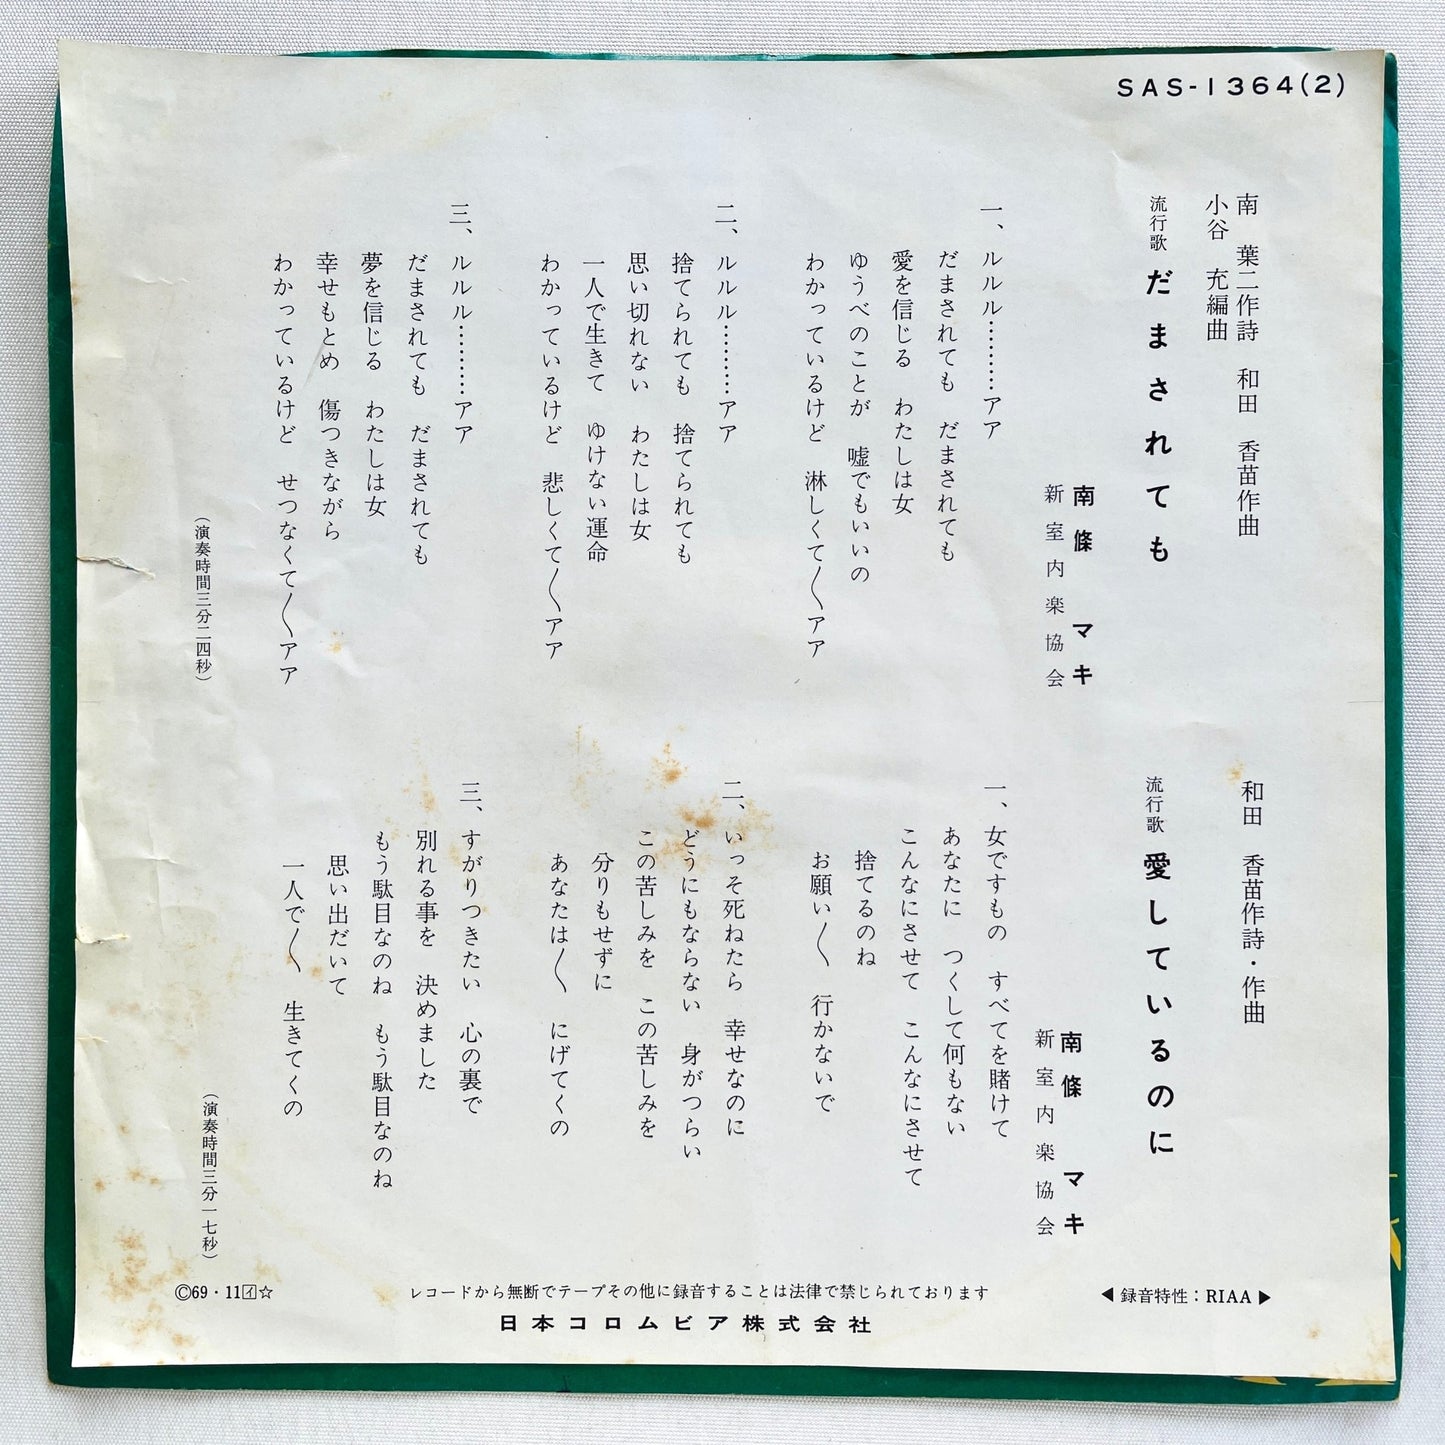 SAS-1364(2)
南 葉二作詩 和田 香苗作曲
小谷 充編曲
流行歌 だまされても
南條 マキ
新室内楽協会
一、ルルル…………アア
だまされても だまされても
愛を信じる わたしは女
ゆうべのことが 嘘でもいいの
わかっているけど 淋しくて〱アア
二、ルルル…………アア
捨てられても 捨てられても
思い切れない わたしは女
一人で生きて ゆけない運命
わかっているけど 悲しくて〱アア
三、ルルル…………アア
だまされても だまされても
夢を信じる わたしは女
幸せもとめ 傷つきながら
わかっているけど せつなくて〱アア
(演奏時間三分二四秒)
和田 香苗作詩・作曲
流行歌 愛しているのに
南條 マキ
新室内楽協会
一、女ですもの すべてを賭けて
あなたに つくして何もない
こんなにさせて こんなにさせて
捨てるのね
お願い〱 行かないで
二、いっそ死ねたら 幸せなのに
どうにもならない 身がつらい
この苦しみを この苦しみを
分りもせずに
あなたは〱 にげてくの
三、すがりつきたい 心の裏で
別れる事を 決めました
もう駄目なのね もう駄目なのね
思い出だいて
一人で〱 生きてくの
(演奏時間三分一七秒)
Ⓒ69・11イ☆
レコードから無断でテープその他に録音することは法律で禁じられております
◀録音特性：RIAA▶
日本コロムビア株式会社